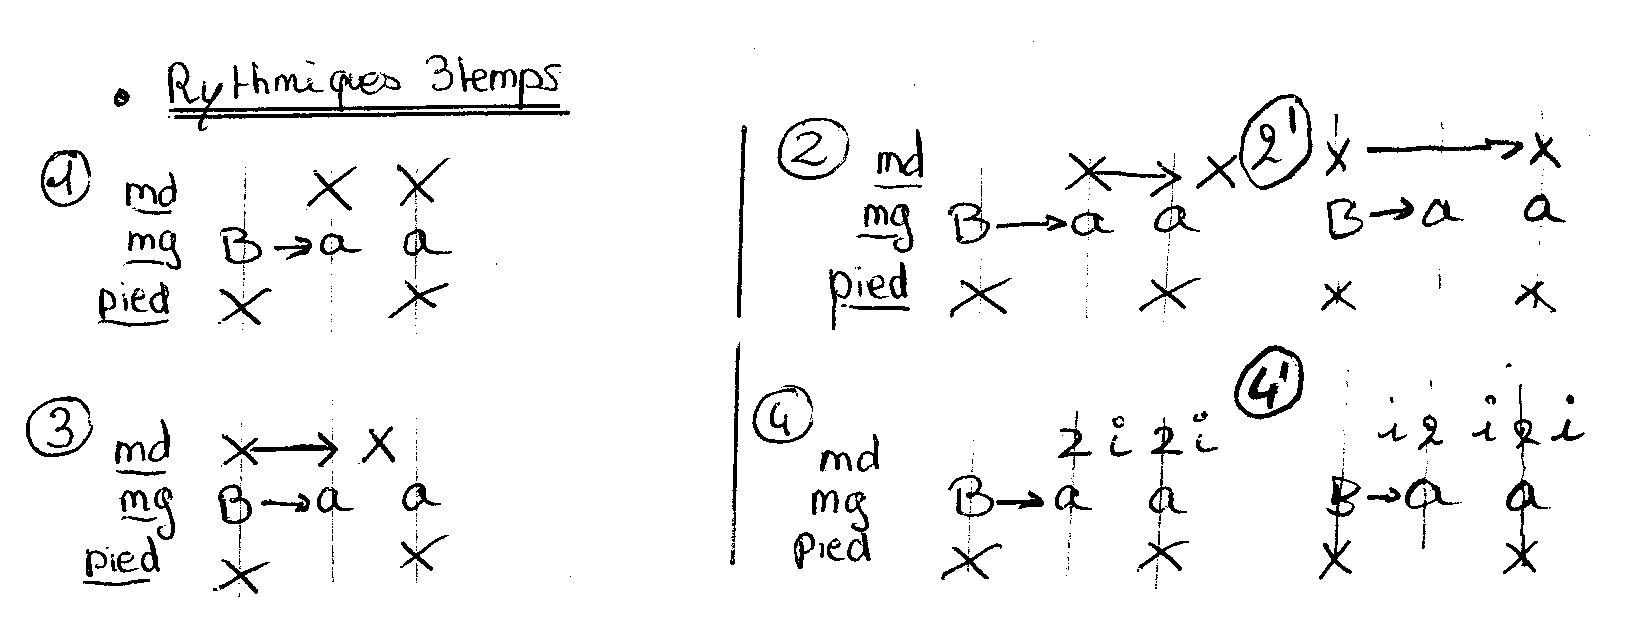 • Rythmiques 3temps
1
md X X
mg B → a a
pied X X
2
md X → X
mg B → a a
pied X X
2'
X → X
B → a a
X X
3
md X → X
mg B → a a
pied X X
4
md 2 i 2 i
mg B → a a
pied X X
4'
i 2 i 2 i
B → a a
X X